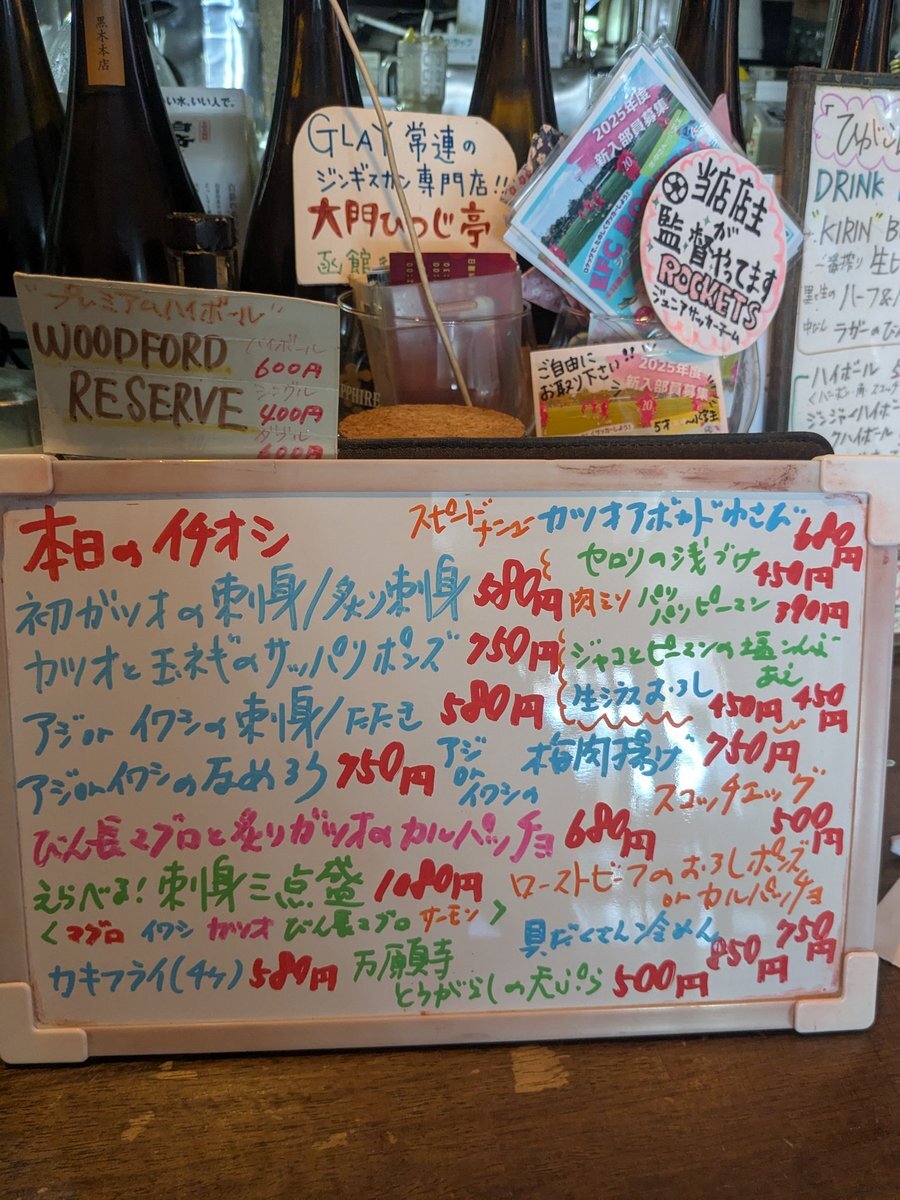 黒木本店
い水、いい人で。
GLAY常連の
ジンギスカン専門店!!
大門ひつじ亭
函館
2025年度
新入部員募集
当店店主
が
監督やってます
ROCKETS
ジュニアサッカーチーム
ご自由に
お取り下さい!!
2025年度
新入部員募集
5才〜小学生
"プレミアムハイボール"
WOODFORD
RESERVE
ハイボール
600円
シングル
400円
ダブル
600円
SAPPHIRE
DRINK
"KIRIN"
一番搾り 生ビ
ハーフ&ハ
ラガーのびん
ハイボール
ジンジャーハイボー
クハイボール
本日のイチオシ
初ガツオの刺身/炙り刺身 580円
カツオと玉ネギのサッパリポンズ 750円
アジorイワシの刺身/たたき 580円
アジorイワシのなめろう 750円
びん長マグロと炙りガツオのカルパッチョ 680円
えらべる!刺身三点盛 1080円
<マグロ イワシ カツオ びん長マグロ サーモン>
カキフライ(4ヶ) 580円
万願寺
とうがらしの天ぷら 500円
スピード
メニュー
カツオアボカドゆさんど 680円
セロリの浅づけ 450円
肉ミソ パリパリピーマン 390円
ジャコとピーマンの塩こんぶ
あえ 450円
生シラスおろし 450円
アジ
or
イワシの
梅肉揚げ 750円
スコッチエッグ
500円
ローストビーフのおろしポンズ
orカルパッチョ
750円
具だくさん冷めん 850円